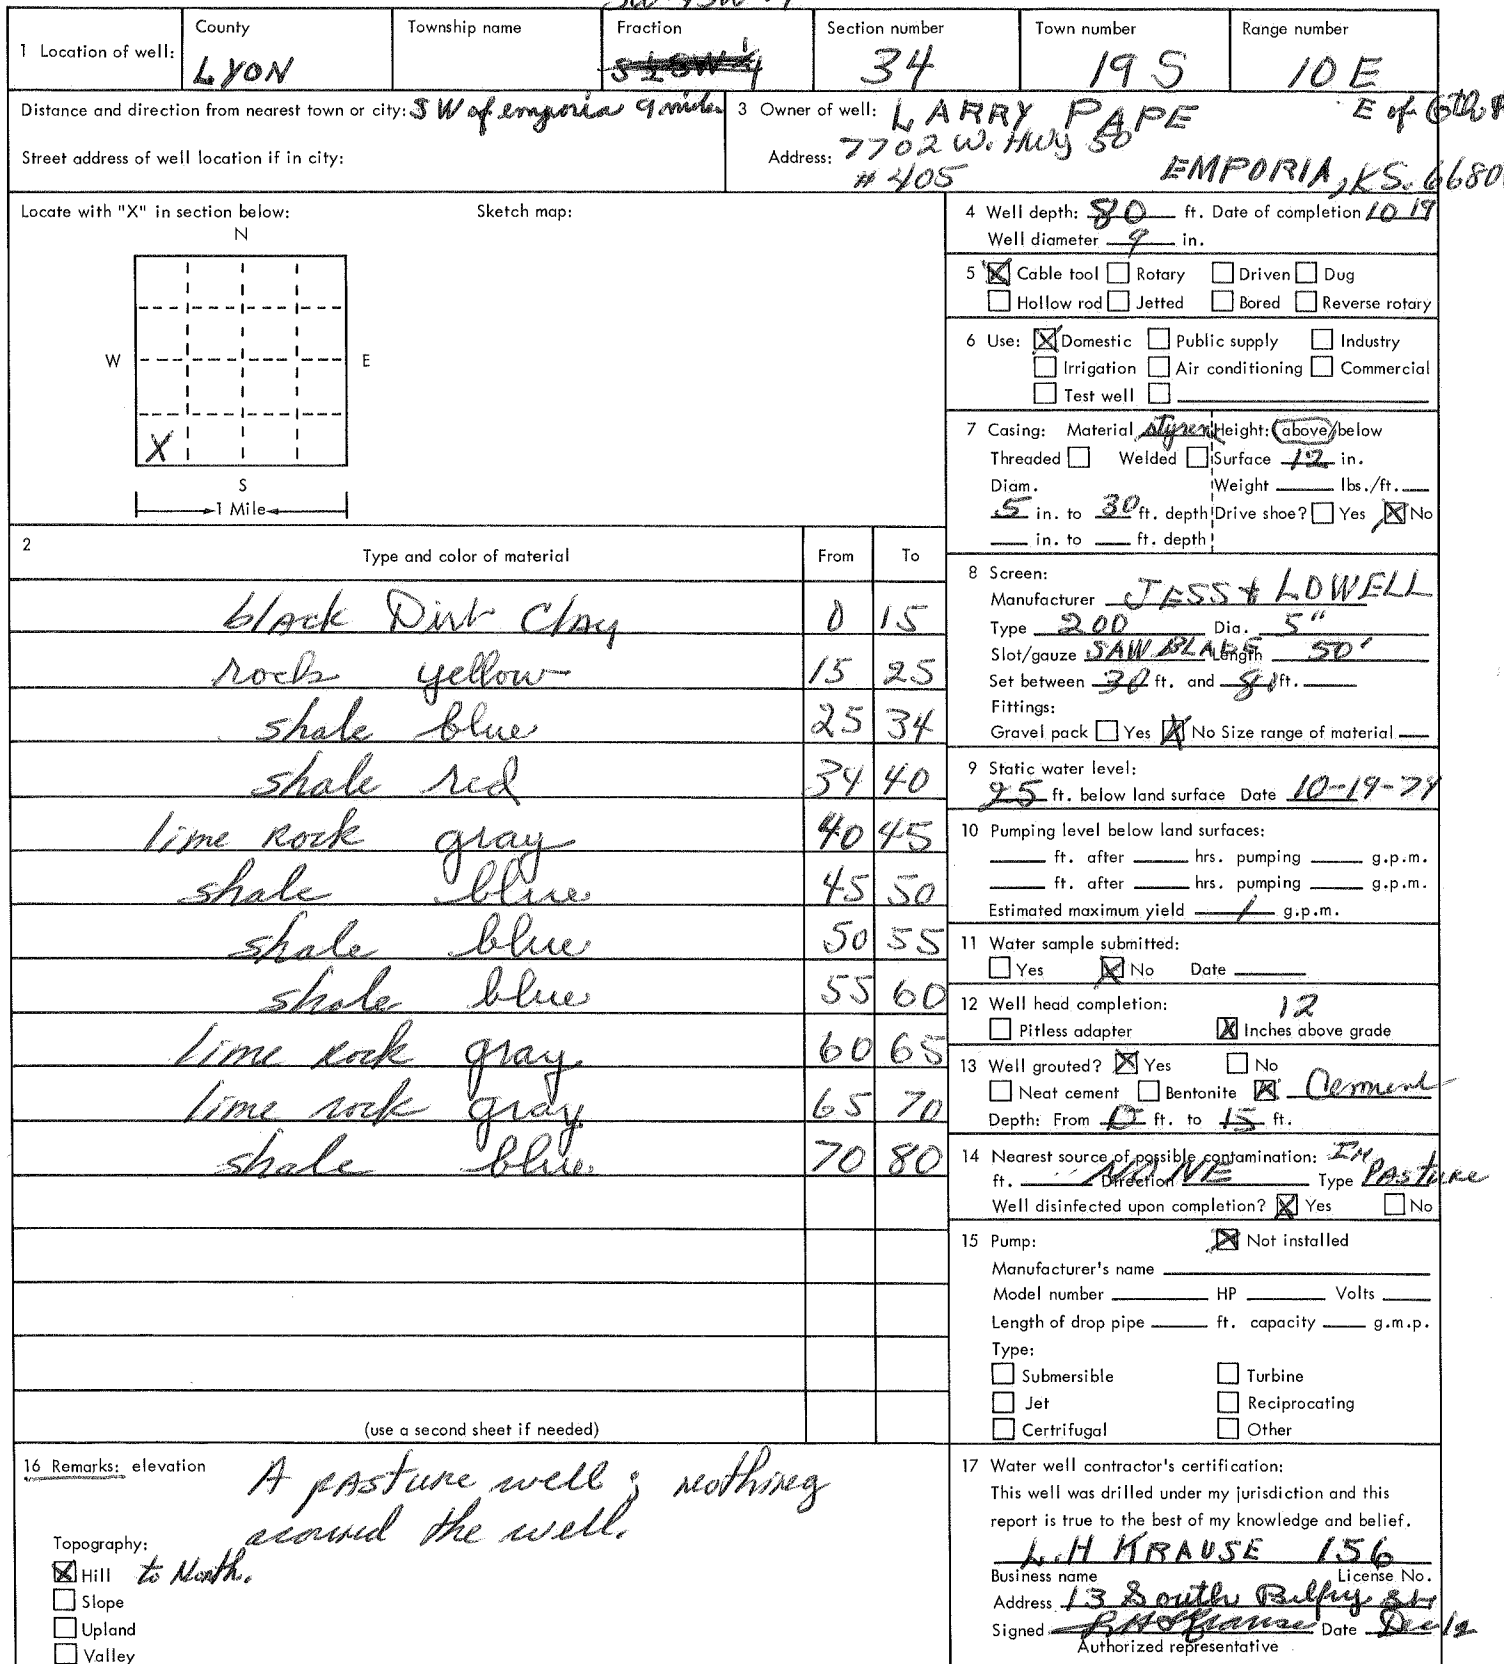 1 Location of well:
County
LYON
Township name
Fraction
Section number
34
Town number
19 S
Range number
10 E
Distance and direction from nearest town or city: SW of emporia 9 miles
Street address of well location if in city:
3 Owner of well: LARRY PAPE
E of 6th
Address: 7702 W. HWY 50
#405 EMPORIA, KS. 6680
Locate with "X" in section below:
Sketch map:
N
W E
X
S
1 Mile
2 Type and color of material From To
black Dirt Clay 0 15
rock yellow 15 25
shale blue 25 34
shale red 34 40
lime Rock gray 40 45
shale blue 45 50
shale blue 50 55
shale blue 55 60
lime Rock gray 60 65
lime rock gray 65 70
shale blue 70 80
(use a second sheet if needed)
4 Well depth: 80 ft. Date of completion 10 19
Well diameter 9 in.
5 Cable tool Rotary Driven Dug
Hollow rod Jetted Bored Reverse rotary
6 Use: Domestic Public supply Industry
Irrigation Air conditioning Commercial
Test well
7 Casing: Material styren Height: above/below
Threaded Welded Surface 12 in.
Diam. Weight lbs./ft.
5 in. to 30 ft. depth Drive shoe? Yes No
in. to ft. depth
8 Screen:
Manufacturer JESS & LOWELL
Type 200 Dia. 5"
Slot/gauze SAW BLADE Length 50'
Set between 30 ft. and 80 ft.
Fittings:
Gravel pack Yes No Size range of material
9 Static water level:
25 ft. below land surface Date 10-19-74
10 Pumping level below land surfaces:
ft. after hrs. pumping g.p.m.
ft. after hrs. pumping g.p.m.
Estimated maximum yield 1 g.p.m.
11 Water sample submitted:
Yes No Date
12 Well head completion: 12
Pitless adapter Inches above grade
13 Well grouted? Yes No
Neat cement Bentonite Cement
Depth: From 0 ft. to 15 ft.
14 Nearest source of possible contamination: IN
ft. Direction NONE Type PASTURE
Well disinfected upon completion? Yes No
15 Pump: Not installed
Manufacturer's name
Model number HP Volts
Length of drop pipe ft. capacity g.m.p.
Type:
Submersible Turbine
Jet Reciprocating
Certrifugal Other
16 Remarks: elevation
A pasture well; nothing
around the well.
Topography:
Hill to North.
Slope
Upland
Valley
17 Water well contractor's certification:
This well was drilled under my jurisdiction and this
report is true to the best of my knowledge and belief.
L.H KRAUSE 156
Business name License No.
Address 13 South Belfry
Signed L H Krause Date Dec 12
Authorized representative